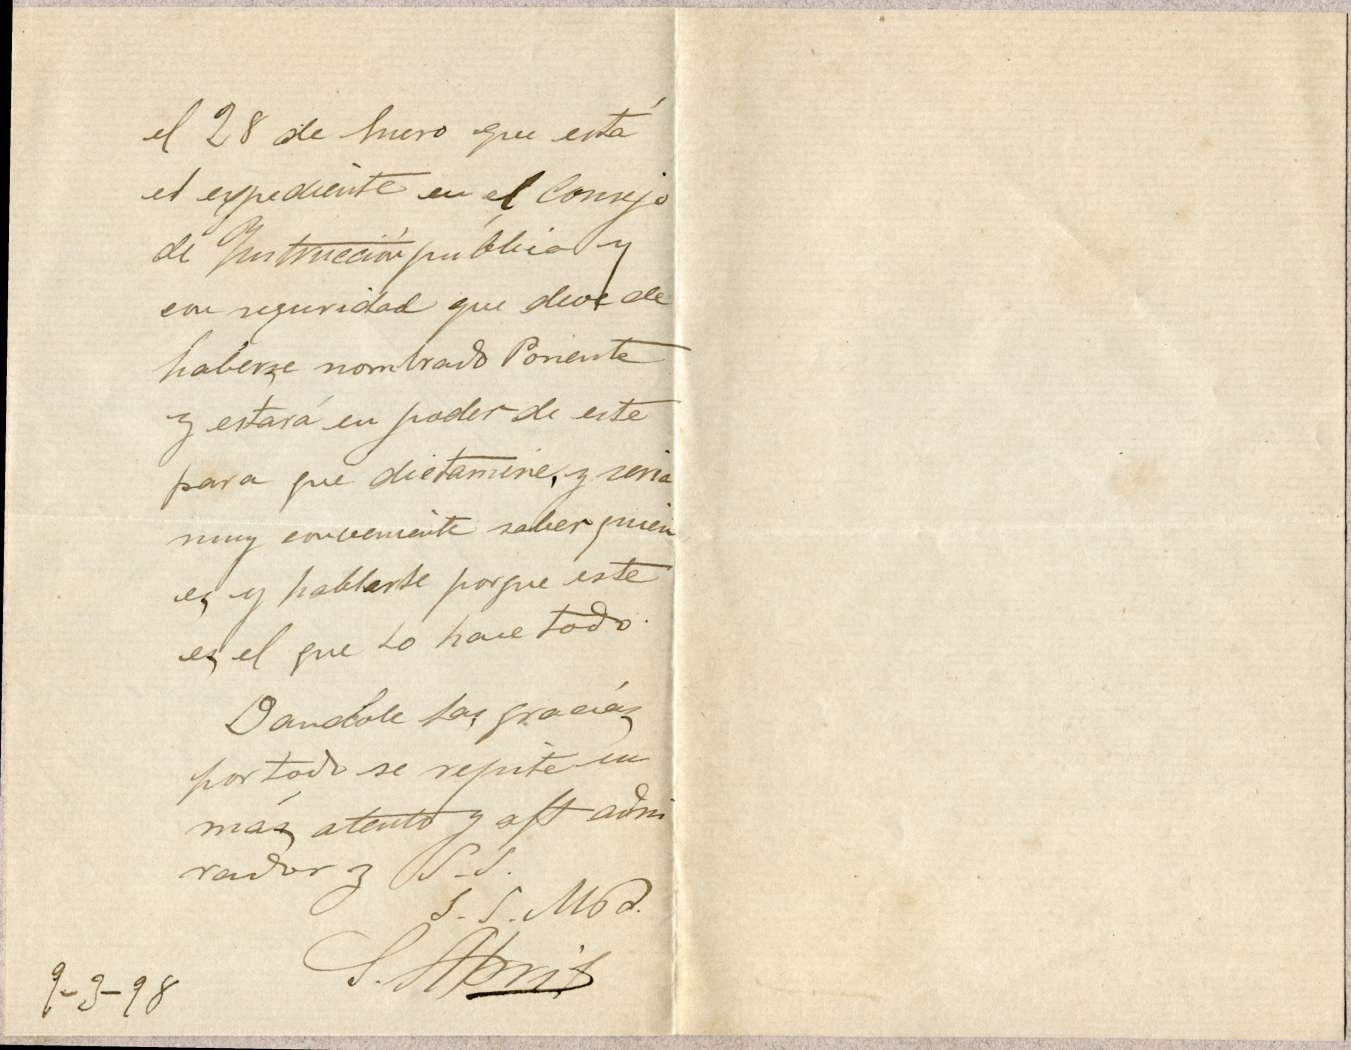 el 28 de Enero que está
el expediente en el Consejo
de Instrucción pública y
con seguridad que deve de
haberse nombrado Ponente
y estará en poder de este
para que dictamine, y seria
muy conveniente saber quien
es y hablarle porque este
es el que lo hace todo.
Dandole las gracias
por todo se repite su
más atento y aft admi
rador y S. S.
S. Abril
9-3-98